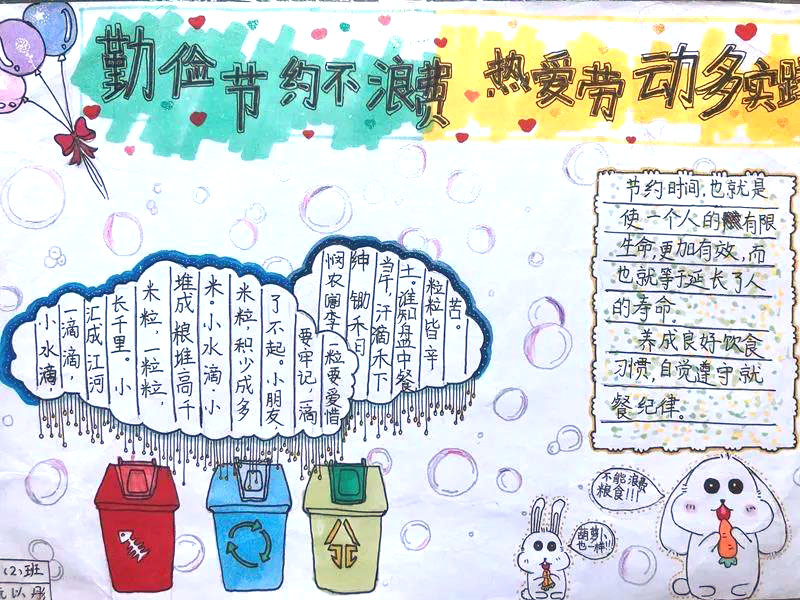 勤俭节约不浪费 热爱劳动多实践
小水滴,
一滴滴,
汇成江河
长千里。小
米粒,一粒粒,
堆成粮堆高千
米。小水滴小
米粒,积少成多
了不起。小朋友
要牢记,一滴
一粒要爱惜
悯农 李
绅 锄禾日
当午,汗滴禾下
土。谁知盘中餐
粒粒皆辛
苦。
节约时间,也就是
使一个人的有限
生命,更加有效,而
也就等于延长了人
的寿命.
养成良好饮食
习惯,自觉遵守就
餐纪律。
不能浪费
粮食!!
葫萝卜
也一样!!
(2)班